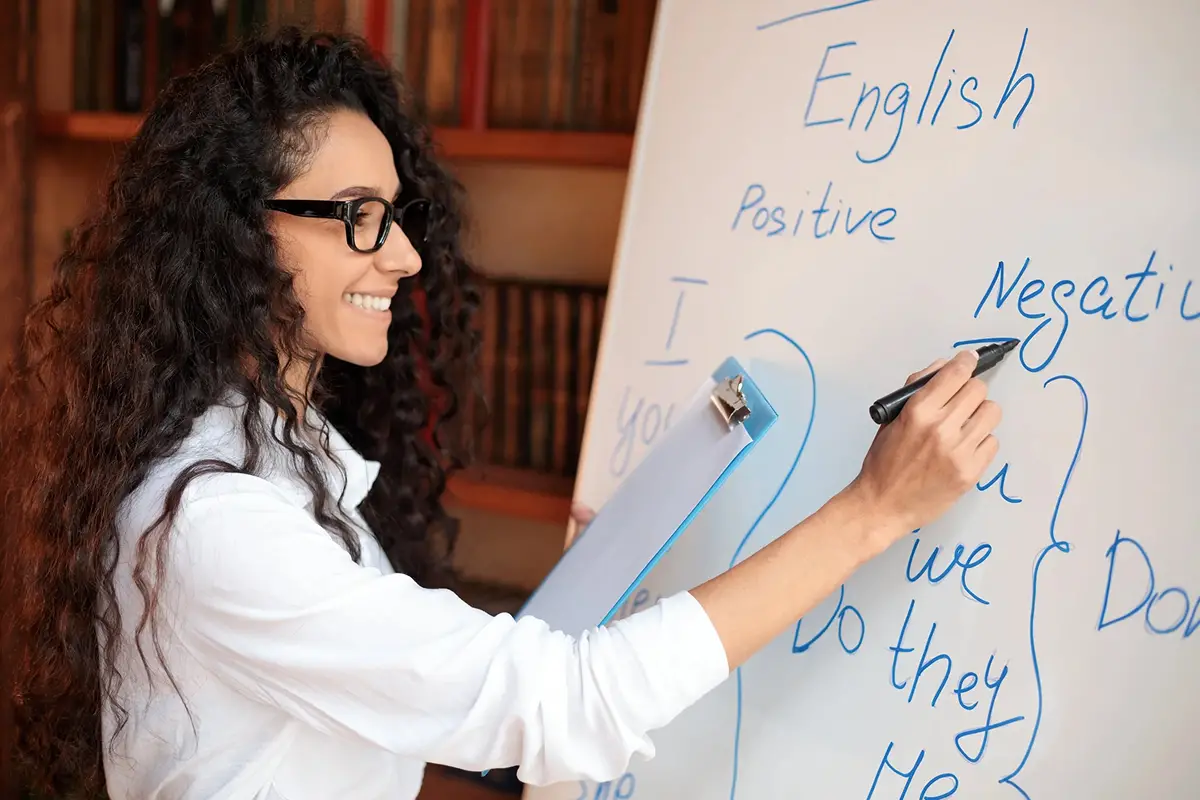 English
Positive
Negativ
I
you
we
Do
they
He
Don